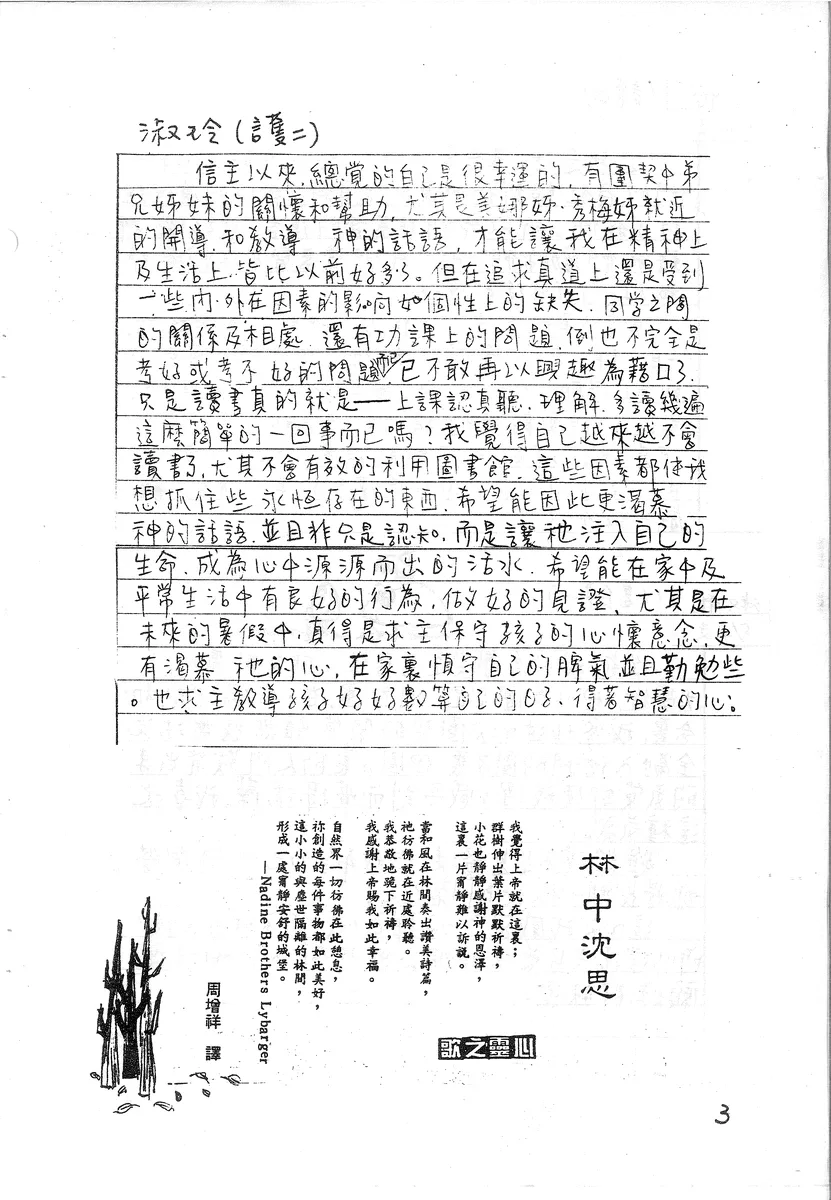 淑玲(護二)
信主以來,總覺的自己是很幸運的,有團契中弟
兄姊妹的關懷和幫助,尤其是美娜姊、秀梅姊就近
的開導,和教導 神的話語,才能讓我在精神上
及生活上,皆比以前好多了。但在追求真道上還是受到
一些內、外在因素的影响如個性上的缺失,同学之間
的關係及相處,還有功課上的問題,倒也不完全是
考好或考不好的問題而已不敢再以興趣為藉口了,
只是讀書真的就是──上課認真聽、理解、多讀幾遍
這麼簡單的一回事而已嗎?我覺得自己越來越不會
讀書了,尤其不會有效的利用圖書館,這些因素都使我
想抓住些永恒存在的東西,希望能因此更渴慕
神的話語,並且非只是認知,而是讓祂注入自己的
生命,成為心中源源而出的活水,希望能在家中及
平常生活中有良好的行為,做好的見證,尤其是在
未來的暑假中,真得是求主保守孩子的心懷意念,更
有渴慕 祂的心,在家裏慎守自己的脾氣並且勤勉些
。也求主教導孩子好好數算自己的日子,得著智慧的心。
林中沈思
心靈之歌
我覺得上帝就在這裏;
群樹伸出葉片默默祈禱,
小花也靜靜感謝神的恩澤,
這裏一片甯靜難以訴說。
當和風在林間奏出讚美詩篇,
祂彷彿就在近處聆聽。
我恭敬地跪下祈禱,
我感謝上帝賜我如此幸福。
自然界一切彷彿在此憩息,
祢創造的每件事物都如此美好,
這小小的與塵世隔離的林間,
形成一處甯靜安舒的城堡。
—Nadine Brothers Lybarger
周增祥 譯
3